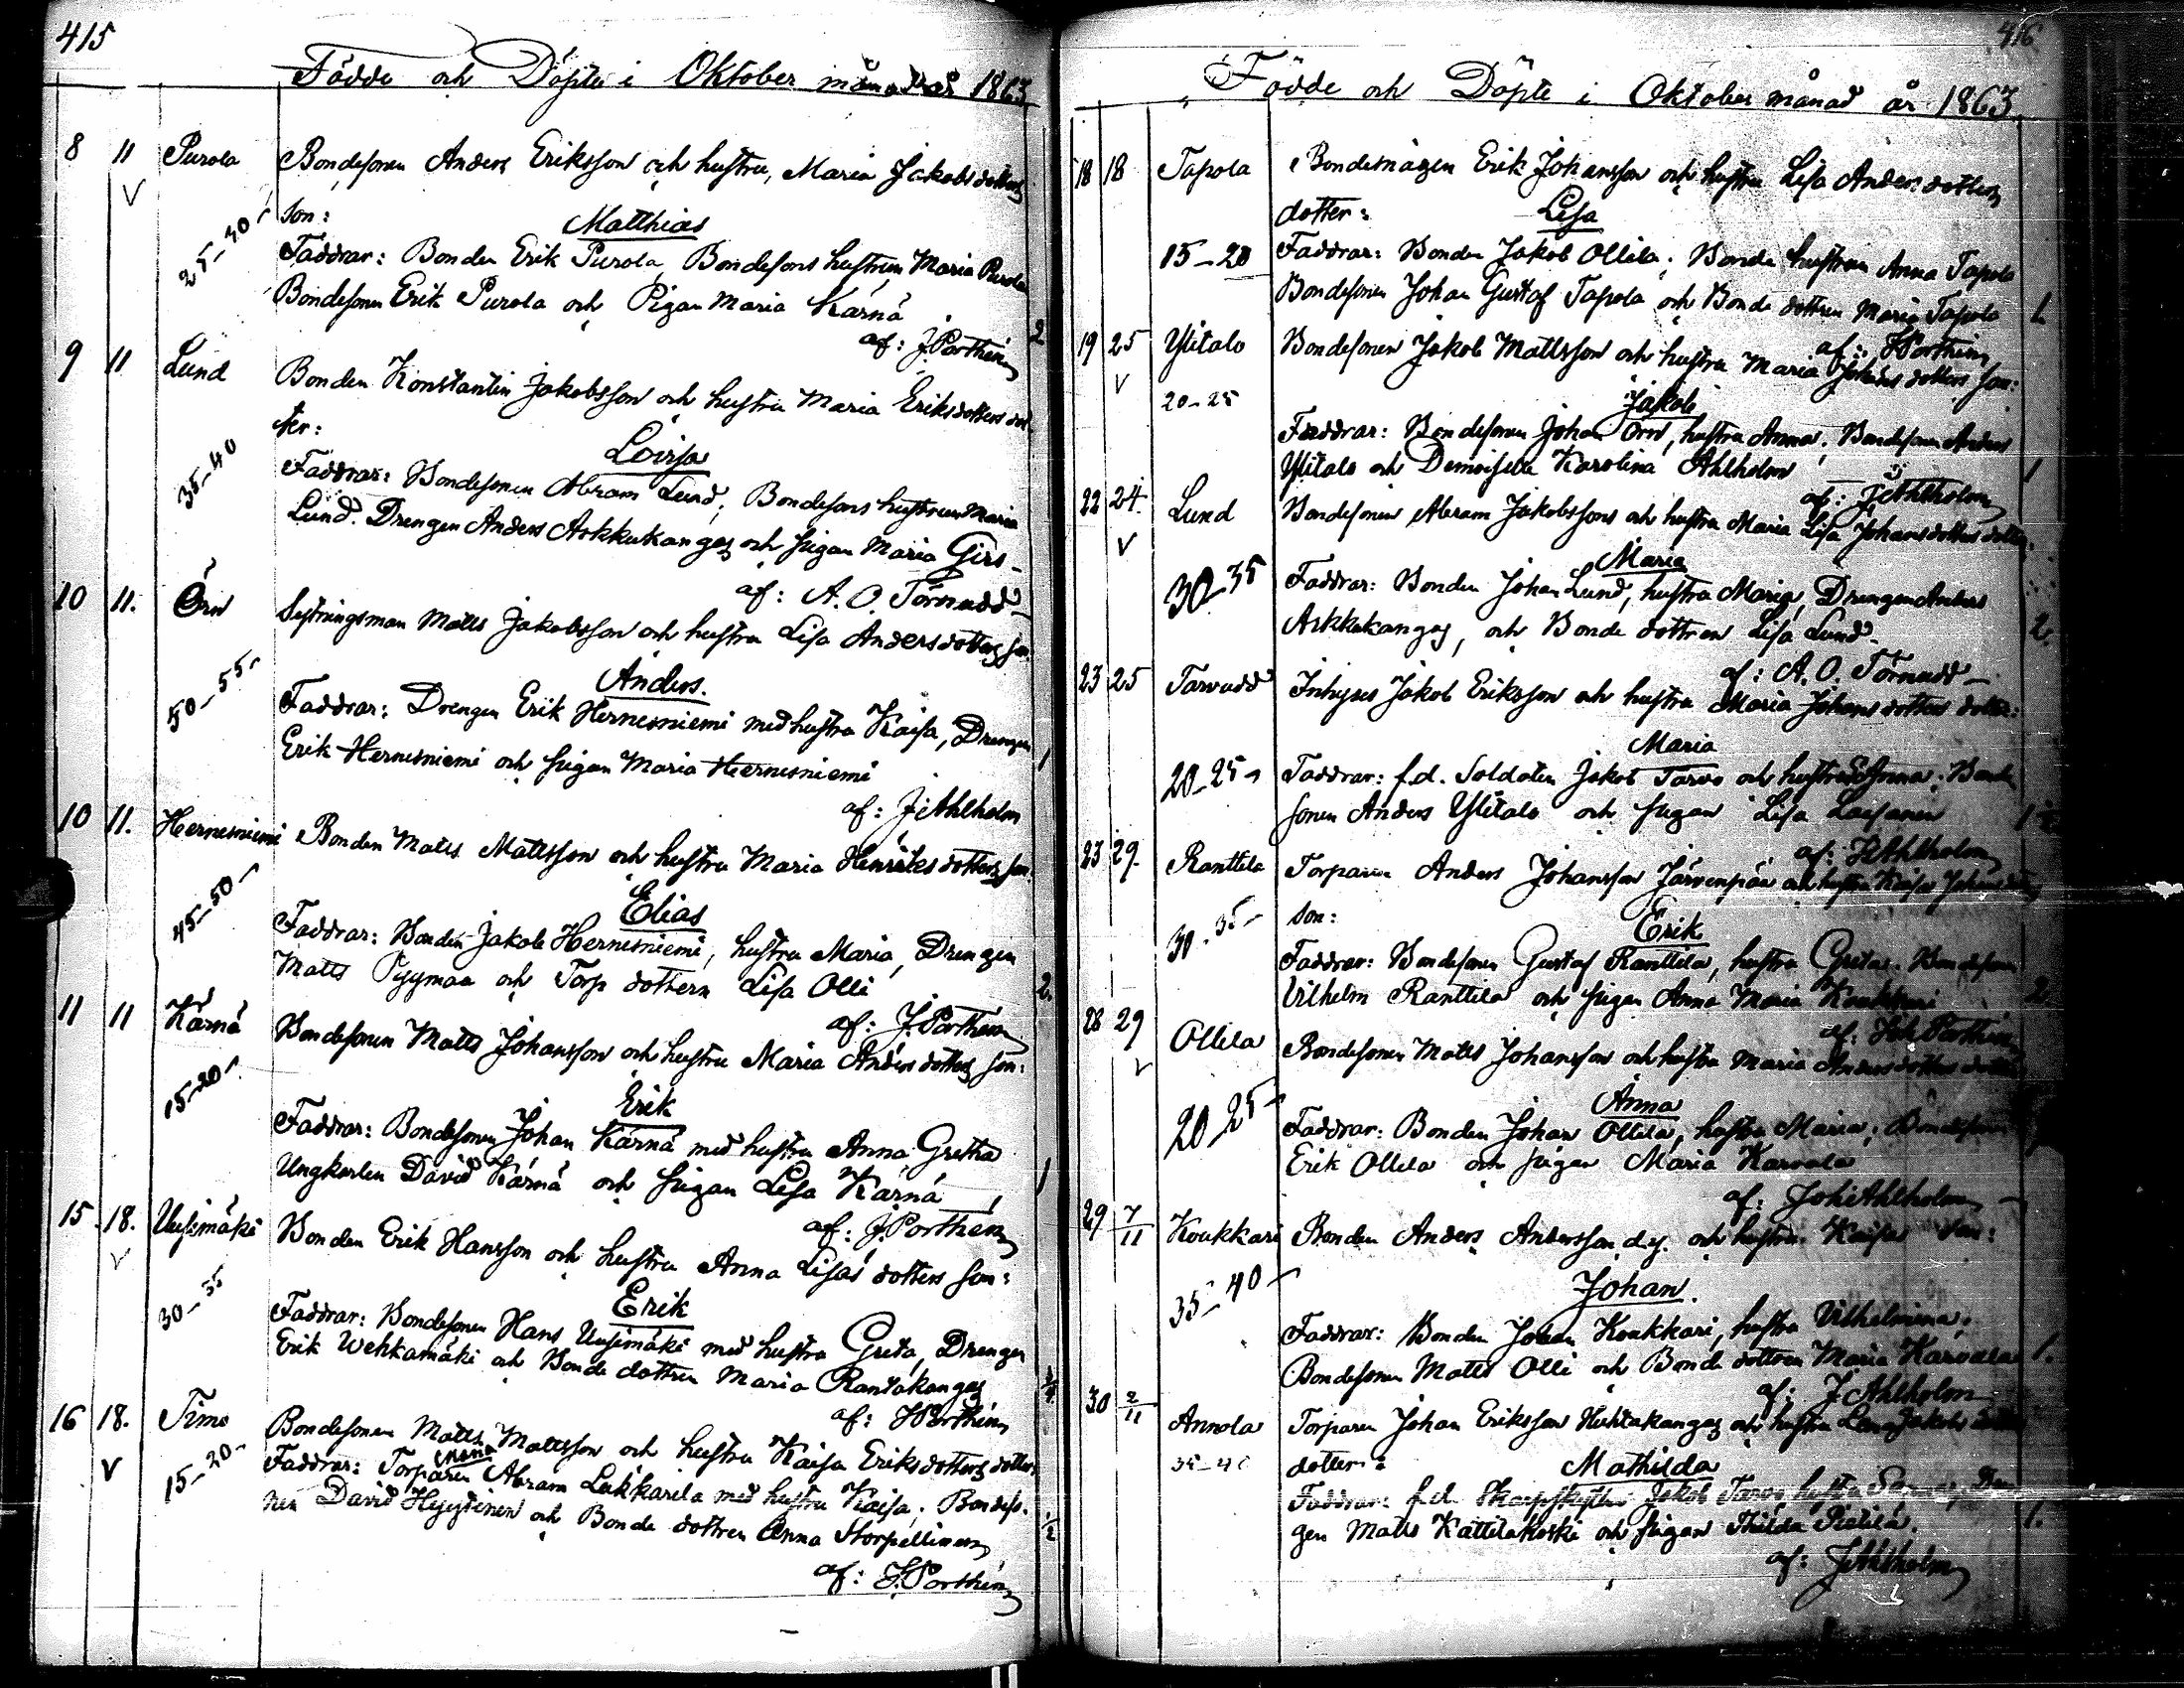 415
Födde och Döpte i Oktober månad år 1863
8 11 Purola Bondesonen Anders Eriksson och hustru, Maria Jakobsdotters
son: Matthias
25-30 Faddrar: Bonden Erik Purola, Bondesons hustrun Maria Purola
Bondesonen Erik Purola och Pigan Maria Kärnä
af: J. Porthén 2
9 11 Lund Bonden Konstantin Jakobsson och hustru Maria Eriksdotters dot-
ter: Lovisa
35-40 Faddrar: Bondesonen Abram Lund, Bondesons hustrun Maria
Lund. Drengen Anders Askkukangas och pigan Maria Girs-
af: A. O. Törnudd
10 11. Örn Sytningsman Matts Jakobsson och hustru Lisa Andersdotters son.
Anders.
50-55 Faddrar: Drengen Erik Hernesniemi med hustru Kaisa, Drengen
Erik Hernesniemi och pigan Maria Hernesniemi 1
af: J Ahlholm
10 11. Hernesniemi Bonden Matts Mattsson och hustru Maria Henriksdotters son
Elias
45-50 Faddrar: Bonden Jakob Hernesniemi, hustru Maria, Drengen
Matts Pyymaa och Torp dottern Lisa Olli 2.
af: J. Porthén
11 11 Kärnä Bondesonen Matts Johansson och hustru Maria Andersdotters son:
Erik
15-20 Faddrar: Bondesonen Johan Kärnä med hustru Anna Gretha
Ungkarlen David Kärnä och pigan Lisa Kärnä 1
af: J. Porthén
15 18. Uusimäki Bonden Erik Hansson och hustru Anna Lisas dotters son:
Erik
30-35 Faddrar: Bondesonen Hans Uusimäki med hustru Greta, Drengen
Erik Wehkamäki och Bonde dottren Maria Rantakangas
af: J Porthén
16 18. Timo Bondesonen Matts Mattsson och hustru Kaisa Eriksdotters dotter:
Maria
15-20 Faddrar: Torparen Abram Lukkarila med hustru Kaisa. Bondeso-
nen David Hyytinen och Bonde dottren Anna Storpellinen 1/2
af: J. Porthén
416
Födde och Döpte i Oktober månad år 1863
18 18 Tapola Bondemågen Erik Johansson och hustru Lisa Andersdotters
dotter: Lisa
15-20 Faddrar: Bonden Jakob Ollila. Bonde hustrun Anna Tapola
Bondesonen Johan Gustaf Tapola och Bonde dottren Maria Tapola 1.
af: J Porthén
19 25 Ylitalo Bondesonen Jakob Mattsson och hustru Maria Johansdotters son:
20-25 Jakob
Faddrar: Bondesonen Johan Örn, hustru Anna, Bondesonen Anders
Ylitalo och Demoiselle Karolina Ahlholm 1
af: J Ahlholm
22 24. Lund Bondesonen Abram Jakobssons och hustru Maria Lisa Johansdotters dotter.
Maria
30-35 Faddrar: Bonden Johan Lund, hustru Maria, Drengen Anders
Askkukangas, och Bonde dottren Lisa Lund. 2.
af: A. O. Törnudd
23 25 Tarvudd Inhyses Jakob Eriksson och hustru Maria Johansdotters dotter:
Maria
20-25 Faddrar: f.d. Soldaten Jakob Tarvo och hustru Anna. Bonde
sonen Anders Ylitalo och pigan Lisa
af: J Ahlholm
23 29. Ranttila Torparen Anders Johansson Järvenpää och hustru Kaisa
son: Erik
30-35 Faddrar: Bondesonen Gustaf Ranttila, hustru Greta. Bondesonen
Vilhelm Ranttila och pigan Anna Maria Koukkari 2
af: Joh. Porthén
28 29 Ollila Bondesonen Matts Johansson och hustru Maria Andersdotters dotter
Anna
20-25 Faddrar: Bonden Johan Ollila, hustru Maria, Bondesonen
Erik Ollila och pigan Maria Karvala
af: Joh Ahlholm
29 7/11 Koukkari Bonden Anders Andersson d.y. och hustru Kaisa son:
Johan.
35-40 Faddrar: Bonden Johan Koukkari, hustru Vilhelmina.
Bondesonen Matts Olli och Bonde dottren Maria Karvala 1.
af: J Ahlholm
30 2/11 Annola Torparen Johan Eriksson Huhtakangas och hustru Lena Jakobs dotters
35-40 dotter: Mathilda
Faddrar: f.d. Skarpskytten Jakob Tarvo hustru Dren-
gen Matts Kattilakoski och pigan Thilda Pietilä. 1.
af: J Ahlholm